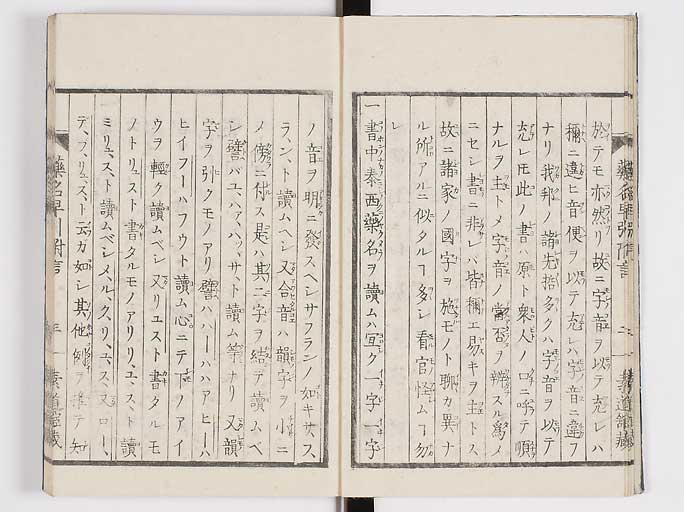 於テモ亦然リ故ニ字音ヲ以テ充レハ
稱ニ違ヒ音便ヲ以テ充レハ字音ニ違フ
ナリ我邦ノ諸先哲多クハ字音ヲ以テ
充レ𪜈此ノ書ハ原ト衆人ノ口ニ呼テ順
ナルヲ主トメ字音ノ當否ヲ辨スル爲メ
ニセシ書ニ非レハ皆稱エ易キヲ主トス
故ニ諸家ノ國字ヲ施モノト聊カ異ナ
ル所アルニ似タルヿ多シ看官怪ムヿ勿
レ
一書中泰西藥名ヲ讀ムハ宜ク一字一字
ノ音ヲ明ニ發スヘシサフランノ如キサ、ス、
ラ、ン、ト讀ムヘシ又合音ハ韻字ヲ小ニ
メ傍ニ付ス是ハ其ノ二字ヲ結テ讀ムベ
シ譬バユ、ハア、ハッ、サ、ト讀ム等ナリ又韻
字ヲ引クモノアリ譬ハハーハハアヒーハ
ヒイフーハフウト讀ム心ニテ下ノアイ
ウヲ輕ク讀ムベシ又リユスト書タルモ
ノトリュスト書タルモノアリリ、ユ、ス、ト讀
ミリュ、ス、ト讀ムベシメ、ル、ク、リ、ュ、ス、又ロー、
デ、フ、リュ、ス、ト云カ如シ其他例ヲ推テ知
藥名早引附言
三